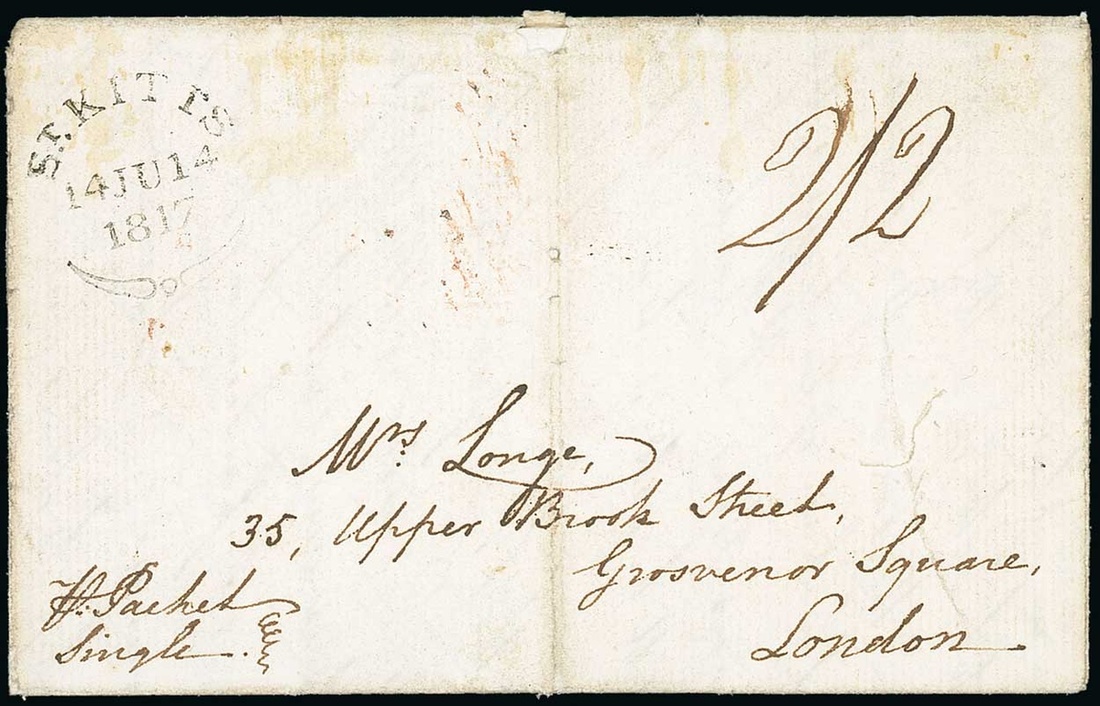 ST. KITTS
14JU14
1817
2/2
Mrs. Longe,
35, Upper Brook Street,
Grosvenor Square,
London
Pr. Packet
Single.